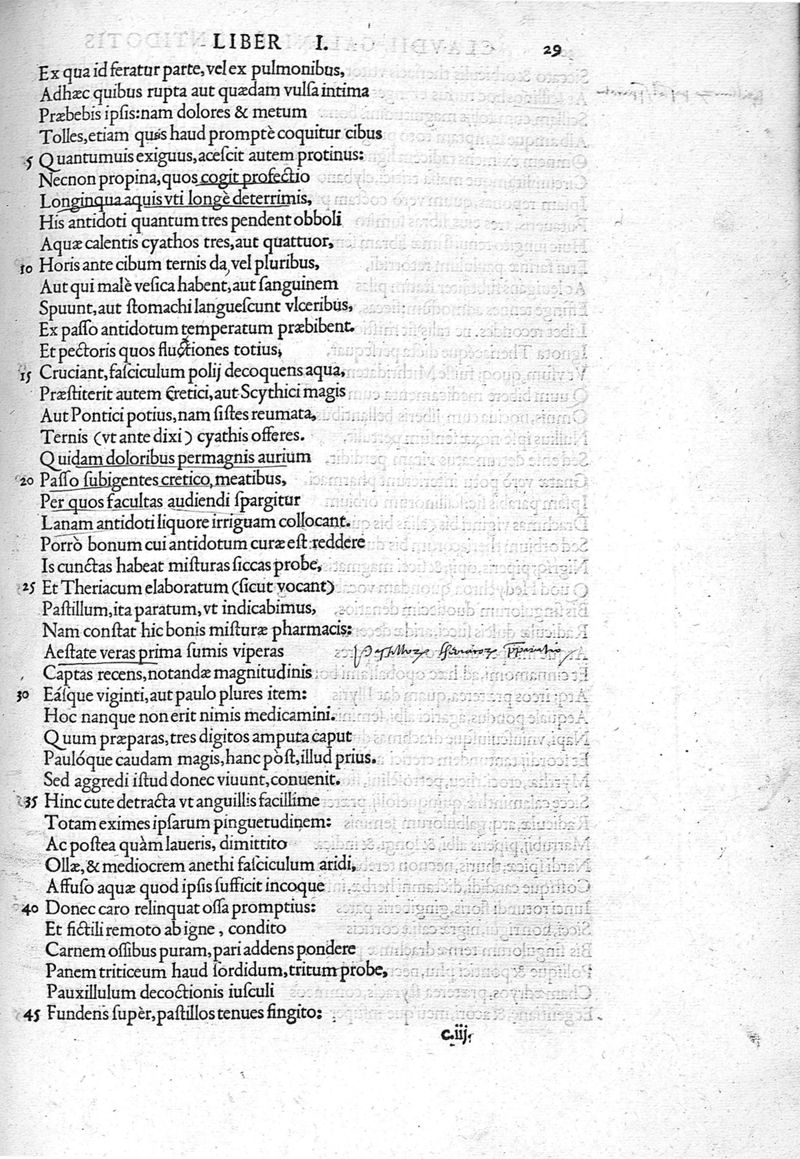 LIBER I. 29
Ex qua id feratur parte, vel ex pulmonibus,
Adhæc quibus rupta aut quædam vulſa intima
Præbebis ipſis: nam dolores & metum
Tolles, etiam quis haud promptè coquitur cibus
5 Quantumuis exiguus, aceſcit autem protinus:
Necnon propina, quos cogit profectio
Longinqua aquis vti longè deterrimis,
His antidoti quantum tres pendent obboli
Aquæ calentis cyathos tres, aut quattuor,
10 Horis ante cibum ternis da, vel pluribus,
Aut qui malè veſica habent, aut ſanguinem
Spuunt, aut ſtomachi langueſcunt vlceribus,
Ex paſſo antidotum temperatum præbibent.
Et pectoris quos fluctiones totius,
15 Cruciant, faſciculum polij decoquens aqua,
Præſtiterit autem Cretici, aut Scythici magis
Aut Pontici potius, nam ſiſtes reumata,
Ternis (vt ante dixi) cyathis offeres.
Quidam doloribus permagnis aurium
20 Paſſo ſubigentes cretico, meatibus,
Per quos facultas audiendi ſpargitur
Lanam antidoti liquore irriguam collocant.
Porrò bonum cui antidotum curæ eſt reddere
Is cunctas habeat miſturas ſiccas probe,
25 Et Theriacum elaboratum (ſicut vocant)
Paſtillum, ita paratum, vt indicabimus,
Nam conſtat hic bonis miſturæ pharmacis:
Aeſtate veras prima ſumis viperas
Captas recens, notandæ magnitudinis
30 Eáſque viginti, aut paulo plures item:
Hoc nanque non erit nimis medicamini.
Quum præparas, tres digitos amputa caput
Paulóque caudam magis, hanc pòſt, illud prius.
Sed aggredi iſtud donec viuunt, conuenit.
35 Hinc cute detracta vt anguillis facillime
Totam eximes ipſarum pinguetudinem:
Ac poſtea quàm laueris, dimittito
Ollæ, & mediocrem anethi faſciculum aridi,
Affuſo aquæ quod ipſis ſufficit incoque
40 Donec caro relinquat oſſa promptius:
Et fictili remoto ab igne, condito
Carnem oſſibus puram, pari addens pondere
Panem triticeum haud ſordidum, tritum probe,
Pauxillulum decoctionis iuſculi
45 Fundens ſupèr, paſtillos tenues fingito:
C.iij.